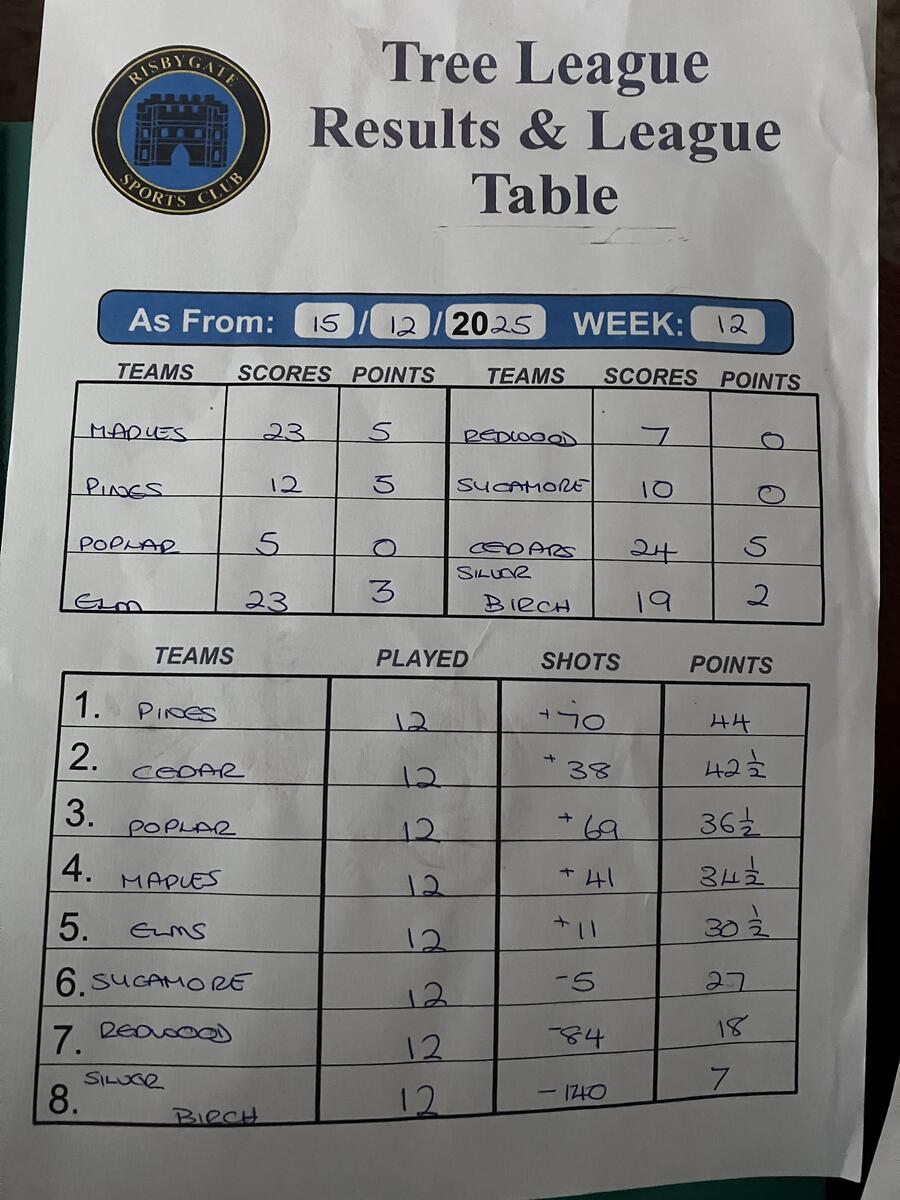 RISBYGATE
SPORTS CLUB
Tree League
Results & League
Table
As From: 15 / 12 / 2025 WEEK: 12
TEAMS SCORES POINTS TEAMS SCORES POINTS
MAPLES 23 5 REDWOOD 7 0
PINES 12 5 SYCAMORE 10 0
POPLAR 5 0 CEDARS 24 5
ELM 23 3 SILVER BIRCH 19 2
TEAMS PLAYED SHOTS POINTS
1. PINES 12 +70 44
2. CEDAR 12 +38 42½
3. POPLAR 12 +69 36½
4. MAPLES 12 +41 34½
5. ELMS 12 +11 30½
6. SYCAMORE 12 -5 27
7. REDWOOD 12 -84 18
8. SILVER BIRCH 12 -140 7